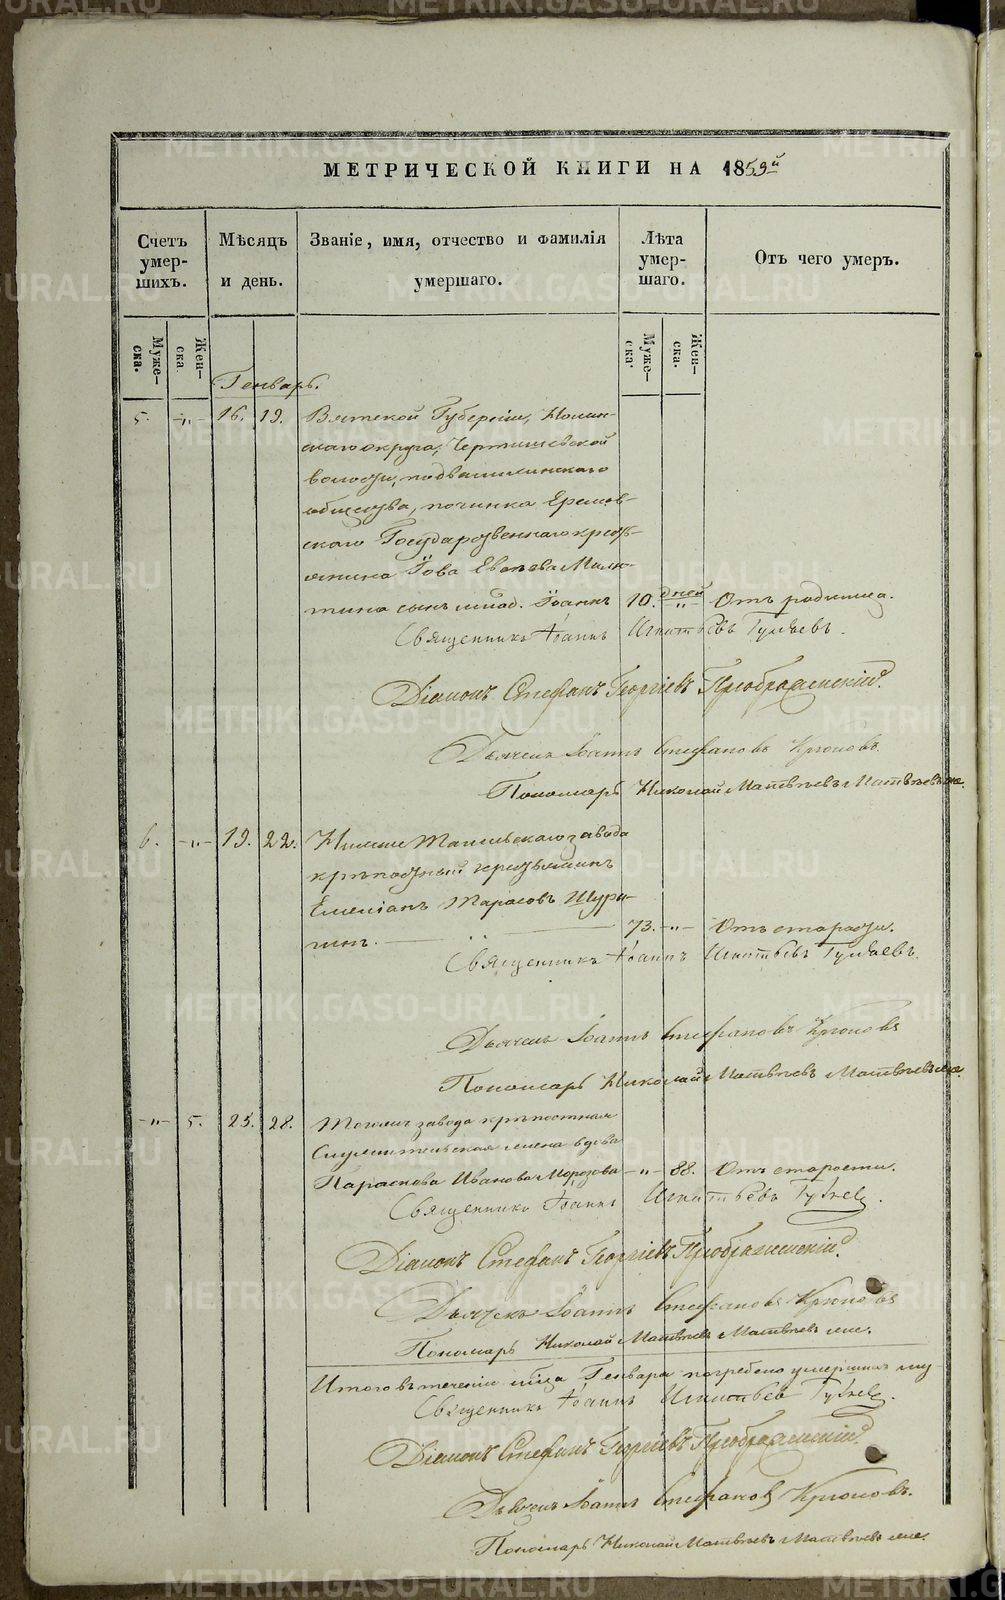 МЕТРИЧЕСКОЙ КНИГИ НА 1859й
Счетъ умерших.
Мѣсяцъ и день.
Званіе, имя, отчество и фамилія умершаго.
Лѣта умершаго.
Отъ чего умеръ.
Мужеска.
Женска
Мужеска.
Женска.
Генварь.
5. -"- 16. 19. Вятской Губерніи, Нолин-
скаго округа,
волости,
общества, починка
скаго Государственнаго кресть-
янина Іова
сынъ млад. Іоаннъ 10. дней -"- Отъ родимца.
Священникъ Іоаннъ Игнатьевъ
Діаконъ Стефанъ Георгіевъ Преображенскій.
Дьячекъ Іоаннъ Стефановъ Крюковъ.
Пономарь Николай Матвѣевъ
6. -"- 19. 22. Нижне Тагильскаго завода
крѣпостный крестьянинъ
Емеліанъ Тарасовъ
73. -"- Отъ старости.
Священникъ Іоаннъ Игнатьевъ
Дьячекъ Іоаннъ Стефановъ Крюковъ
Пономарь Николай Матвѣевъ
-"- 5. 25. 28. завода крѣпостная
жена вдова
Параскова Иванова Морозова -"- 88. Отъ старости.
Священникъ Іоаннъ Игнатьевъ
Діаконъ Стефанъ Георгіевъ Преображенскій.
Дьячекъ Іоаннъ Стефановъ Крюковъ
Пономарь Николай Матвѣевъ
Итого въ теченіи мѣсяца Генваря погребено умершихъ
Священникъ Іоаннъ Игнатьевъ
Діаконъ Стефанъ Георгіевъ Преображенскій.
Дьячекъ Іоаннъ Стефановъ Крюковъ.
Пономарь Николай Матвѣевъ
METRIKI.GASO-URAL.RU